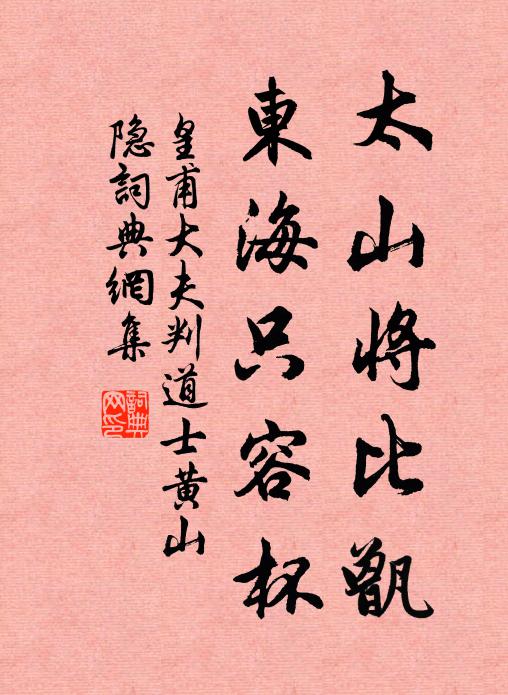 太山將比甑
東海只容杯
皇甫大夫判道士黃山
隐詞典網集
詞典
网印